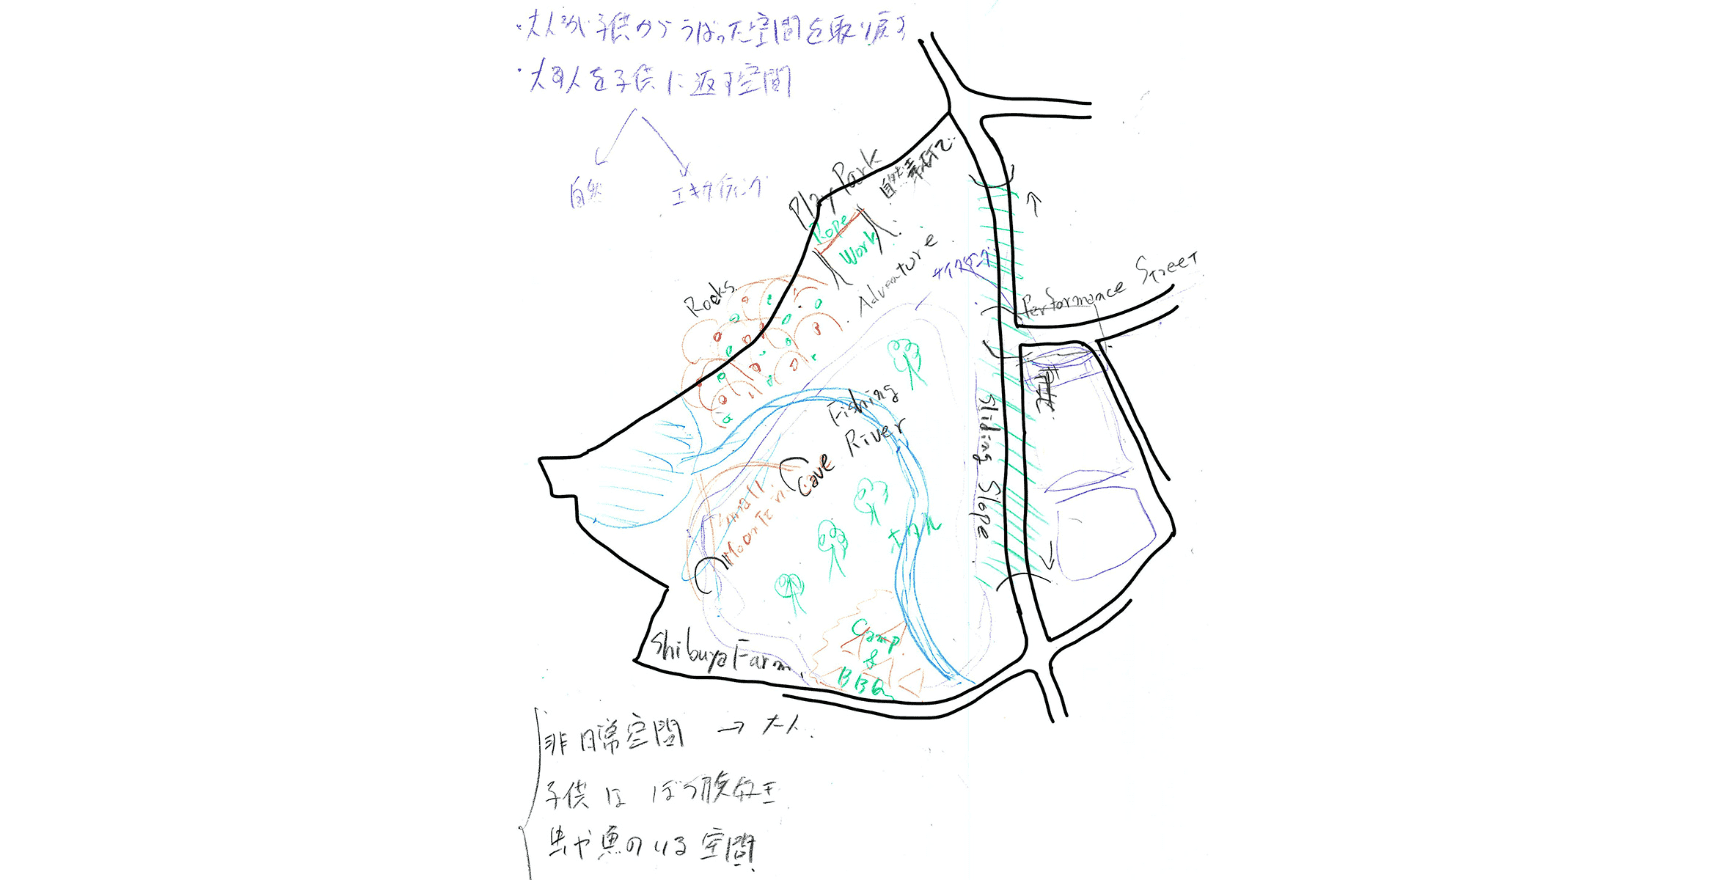 ・大人が子供からうばった空間を取り戻す
・大人を子供に返す空間
自然
エキサイティング
Play Park
自然素材で
Rope
Work
Adventure
Rocks
サイクリング
Performance Street
Fishing
River
Cave
Small
Mountain
ホタル
Sliding Slope
Shibuya Farm
Camp
&
BBQ
非日常空間 → 大人
子供は ぼう険
虫や魚のいる空間